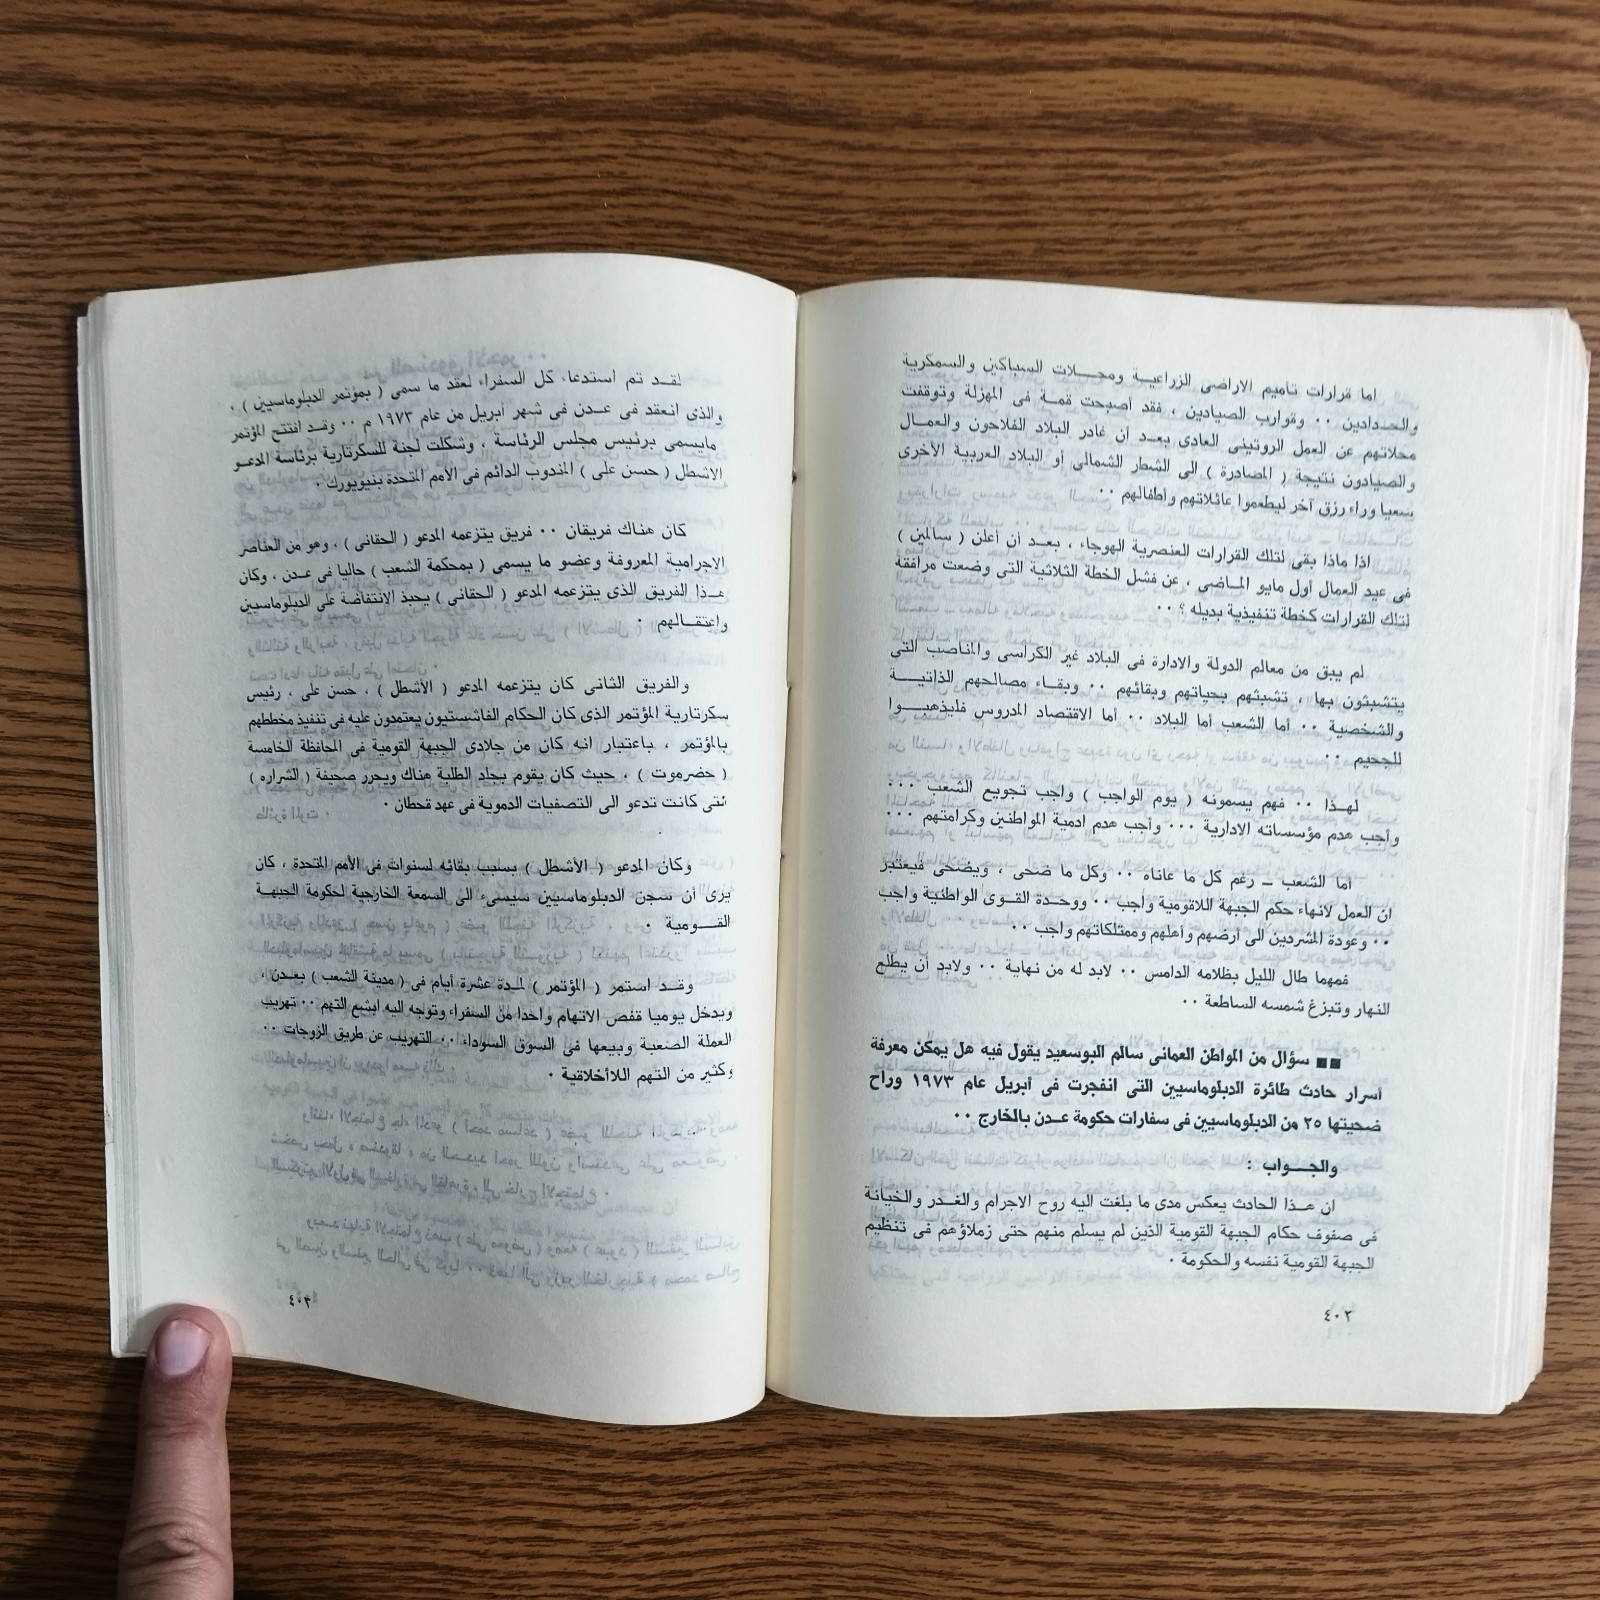 اما قرارات تاميم الاراضى الزراعيـة ومحـلات السباكين والسمكرية
والحـدادين ·· وقوارب الصيادين ، فقد أصبحت قمة فى المهزلة وتوقفت
محلاتهم عن العمل الروتينى العادى بعـد أن غادر البلاد الفلاحون والعمـال
والصيادون نتيجة ( المصادرة ) الى الشطر الشمالى أو البلاد العربية الأخرى
سعيا وراء رزق آخر ليطعموا عائلاتهم وأطفالهم ··
اذا ماذا بقى لتلك القرارات العنصرية الهوجاء ، بعـد أن أعلن ( سالمين )
فى عيد العمال أول مايو المـاضى ، عن فشل الخطة الثلاثية التى وضعت مرافقة
لتلك القرارات كخطة تنفيذية بديله ؟ ··
لم يبق من معالم الدولة والادارة فى البلاد غير الكراسى والمناصب التى
يتشبثون بها ، تشبثهم بحياتهم وبقائهم ·· وبقـاء مصالحهم الذاتيـة
والشخصية ·· أما الشعب أما البلاد ·· أما الاقتصاد المدروس فليذهبـوا
للجحيم ··
لهـذا ·· فهم يسمونه ( يوم الواجب ) واجب تجويع الشعب ···
وأجب هدم مؤسساته الادارية ··· وأجب هدم ادمية المواطنين وكرامتهم ···
أما الشعب ـ رغم كل ما عاناه ·· وكل ما ضحى ، ويضحى فيعتبر
ان العمل لانهاء حكم الجبهة اللاقومية وأجب ·· ووحدة القوى الواطنية واجب
·· وعودة المشردين الى أرضهم وأهلهم وممتلكاتهم واجب ··
فمهما طال الليل بظلامه الدامس ·· لابد له من نهاية ·· ولابد أن يطلع
النهار وتبزغ شمسه الساطعة ··
■■ سؤال من المواطن العمانى سالم البوسعيد يقول فيه هل يمكن معرفة
أسرار حادث طائرة الدبلوماسيين التى انفجرت فى أبريل عام ١٩٧٣ وراح
ضحيتها ٢٥ من الدبلوماسيين فى سفارات حكومة عـدن بالخارج ··
والجـواب :
ان هـذا الحادث يعكس مدى ما بلغت اليه روح الاجرام والغـدر والخيانة
فى صفوف حكام الجبهة القومية الذين لم يسلم منهم حتى زملاؤهم فى تنظيم
الجبهة القومية نفسه والحكومة ·
٤٠٢
لقـد تم استدعاء كل السفراء لعقد ما سمى ( بمؤتمر الدبلوماسيين ) ·
والذى انعقد فى عـدن فى شهر أبريل من عام ١٩٧٣ م ·· وقـد افتتح المؤتمر
مايسمى برئيس مجلس الرئاسة ، وشكلت لجنة للسكرتارية برئاسة المدعـو
الاشطل ( حسن على ) المندوب الدائم فى الأمم المتحدة بنيويورك ·
كان هناك فريقان ·· فريق يتزعمه المدعو ( الحقانى ) ، وهو من العناصر
الاجرامية المعروفة وعضو ما يسمى ( بمحكمة الشعب ) حاليا فى عـدن ، وكان
هـذا الفريق الذى يتزعمه المدعو ( الحقانى ) يحبذ الانتفاضة على الدبلوماسيين
واعتقـالهم ·
والفريق الثانى كان يتزعمه المدعو ( الأشطل ) ، حسن على ، رئيس
سكرتارية المؤتمر الذى كان الحكام الفاشستيون يعتمدون عليه فى تنفيذ مخططهم
بالمؤتمر ، باعتبار انه كان من جلادى الجبهة القومية فى المحافظة الخامسة
( حضرموت ) ، حيث كان يقوم بجلد الطلبة هناك ويحرر صحيفة ( الشراره )
التى كانت تدعو الى التصفيات الدموية فى عهد قحطان ·
وكان المدعو ( الأشطل ) بسبب بقائه لسنوات فى الأمم المتحدة ، كان
يرى أن سجن الدبلوماسيين سيسىء الى السمعة الخارجية لحكومة الجبهـة
القـومية ·
وقـد استمر ( المؤتمر ) لمـدة عشرة أيام فى ( مدينة الشعب ) بعـدن ،
ويدخل يوميا قفص الاتهام واحدا من السفراء وتوجه اليه ابشع التهم ·· تهريب
العملة الصعبة وبيعها فى السوق السوداء ·· التهريب عن طريق الزوجات ··
وكثير من التهم اللاأخلاقية ·